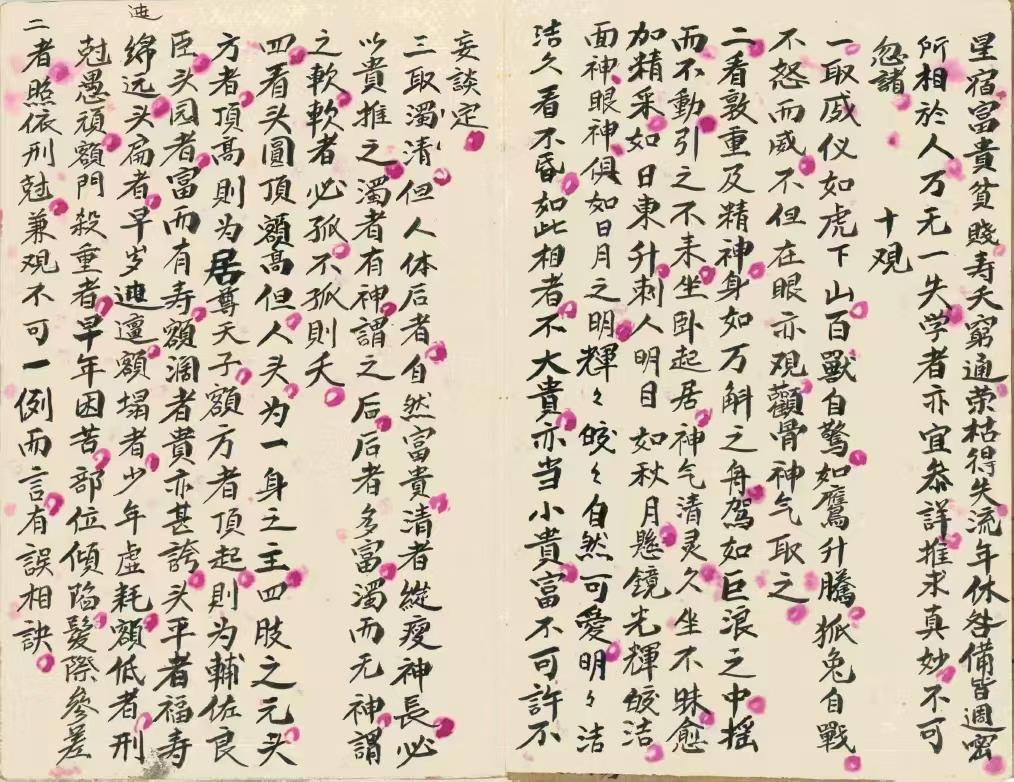 星宿富貴貧賤寿夭窮通荣枯得失流年休咎備皆週密
所相於人万无一失学者亦宜叅詳推求真妙不可
忽諸　　十观
一取威仪如虎下山百獸自驚如鷹升騰狐兔自戰
不怒而威不但在眼亦观顴骨神气取之
二看敦重及精神身如万斛之舟駕如巨浪之中摇
而不動引之不来坐卧起居神气清灵久坐不昧愈
加精采如日東升刺人明目如秋月懸鏡光輝皎洁
面神眼神俱如日月之明輝々皎々自然可愛明々洁
洁久看不昏如此相者不大貴亦当小貴富不可許不
妄談定
三取濁清但人体后者自然富貴清者縱瘦神長必
以貴推之濁者有神謂之后后者多富濁而无神謂
之軟軟者必孤不孤則夭
四看头圓頂額高但人头为一身之主四肢之元头
方者頂高則为居尊天子額方者頂起則为輔佐良
臣头园者富而有寿額濶者貴亦甚誇头平者福寿
綿远头扁者早岁迍邅額塌者少年虚耗額低者刑
尅愚頑額門殺重者早年困苦部位傾陷髮際參差
二者照依刑尅兼观不可一例而言有誤相訣
迍